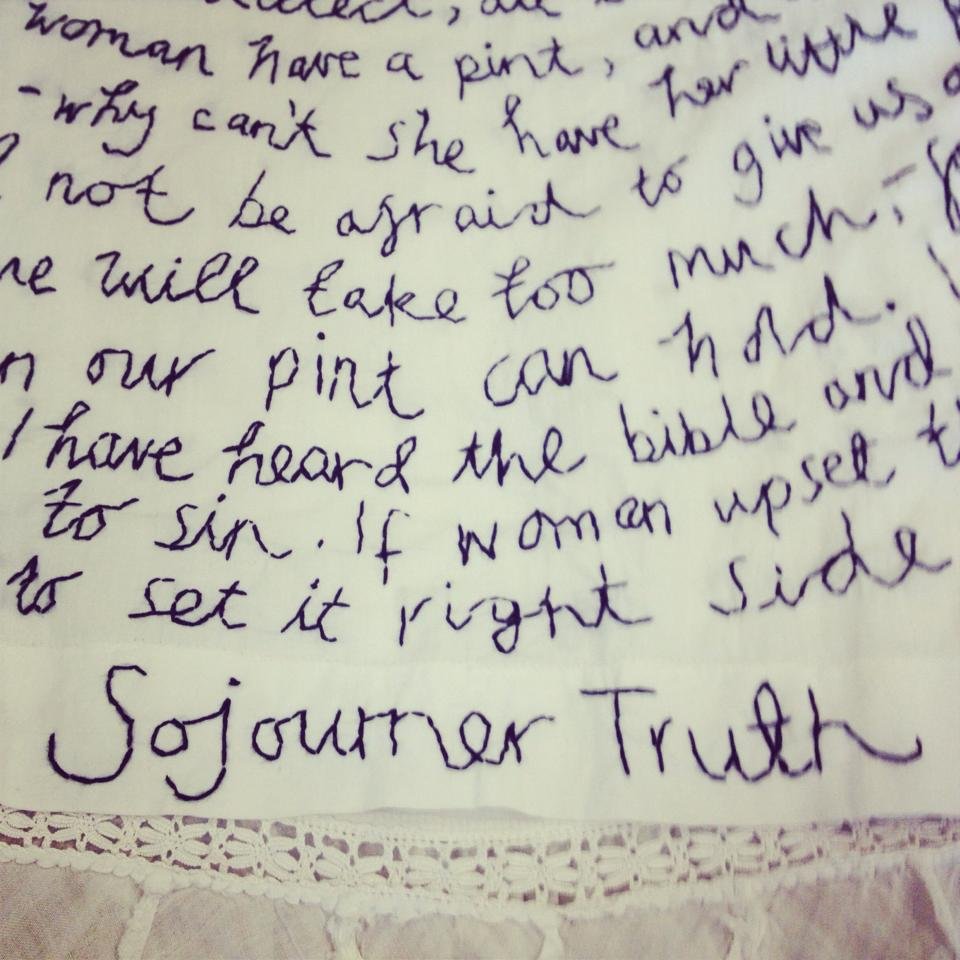 woman have a pint, and
- why can't she have her little
not be afraid to give us
will take too much; -
our pint can hold.
I have heard the bible and
to sin. If women upset
to set it right side
Sojourner Truth